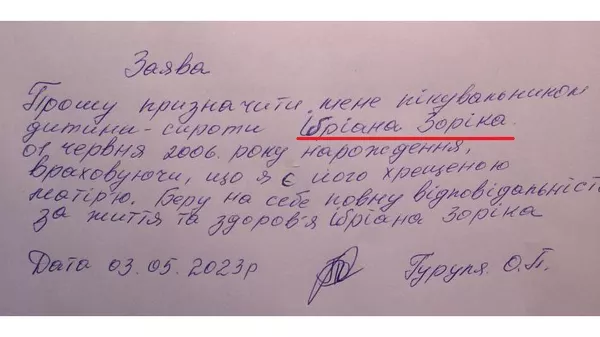 Заява
Прошу призначити мене пікувальником
дитини-сироти Ібріана Зоріна
01 червня 2006 року нарождення,
враховуючи, що я є його хрещеною
матір'ю. Беру на себе повну відповідальність
за життя та здоров'я Ібріана Зоріна
Дата 03.05.2023р Гуруля О.П.